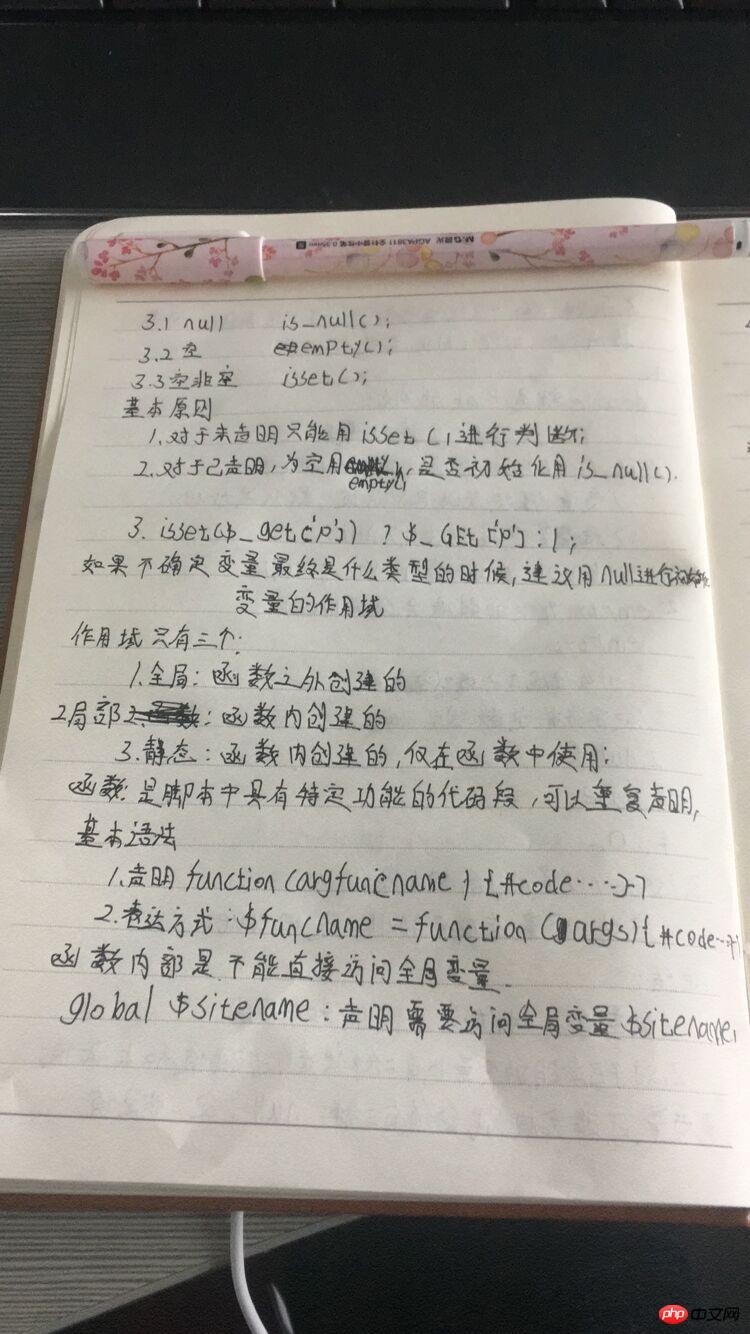 M&G晨光 AGPA3811 全针管中性笔 0.35mm
3.1 null is_null();
3.2 空 empty();
3.3 空非空 isset();
基本原则
1.对于未声明只能用isset()进行判断;
2.对于已声明,为空用empty(),是否初始化用is_null().
3. isset($_get['p']) ? $_GEt['p'] : 1;
如果不确定变量最终是什么类型的时候,建议用null进行初始化
变量的作用域
作用域只有三个:
1.全局:函数之外创建的
2局部:函数内创建的
3.静态:函数内创建的,仅在函数中使用;
函数:是脚本中具有特定功能的代码段,可以重复声明,
基本语法
1.声明function (argfuncname) {#code……}
2.表达方式:$funcname = function (args){#code…}
函数内部是不能直接访问全局变量.
global $sitename:声明需要访问全局变量$sitename,
php中文网